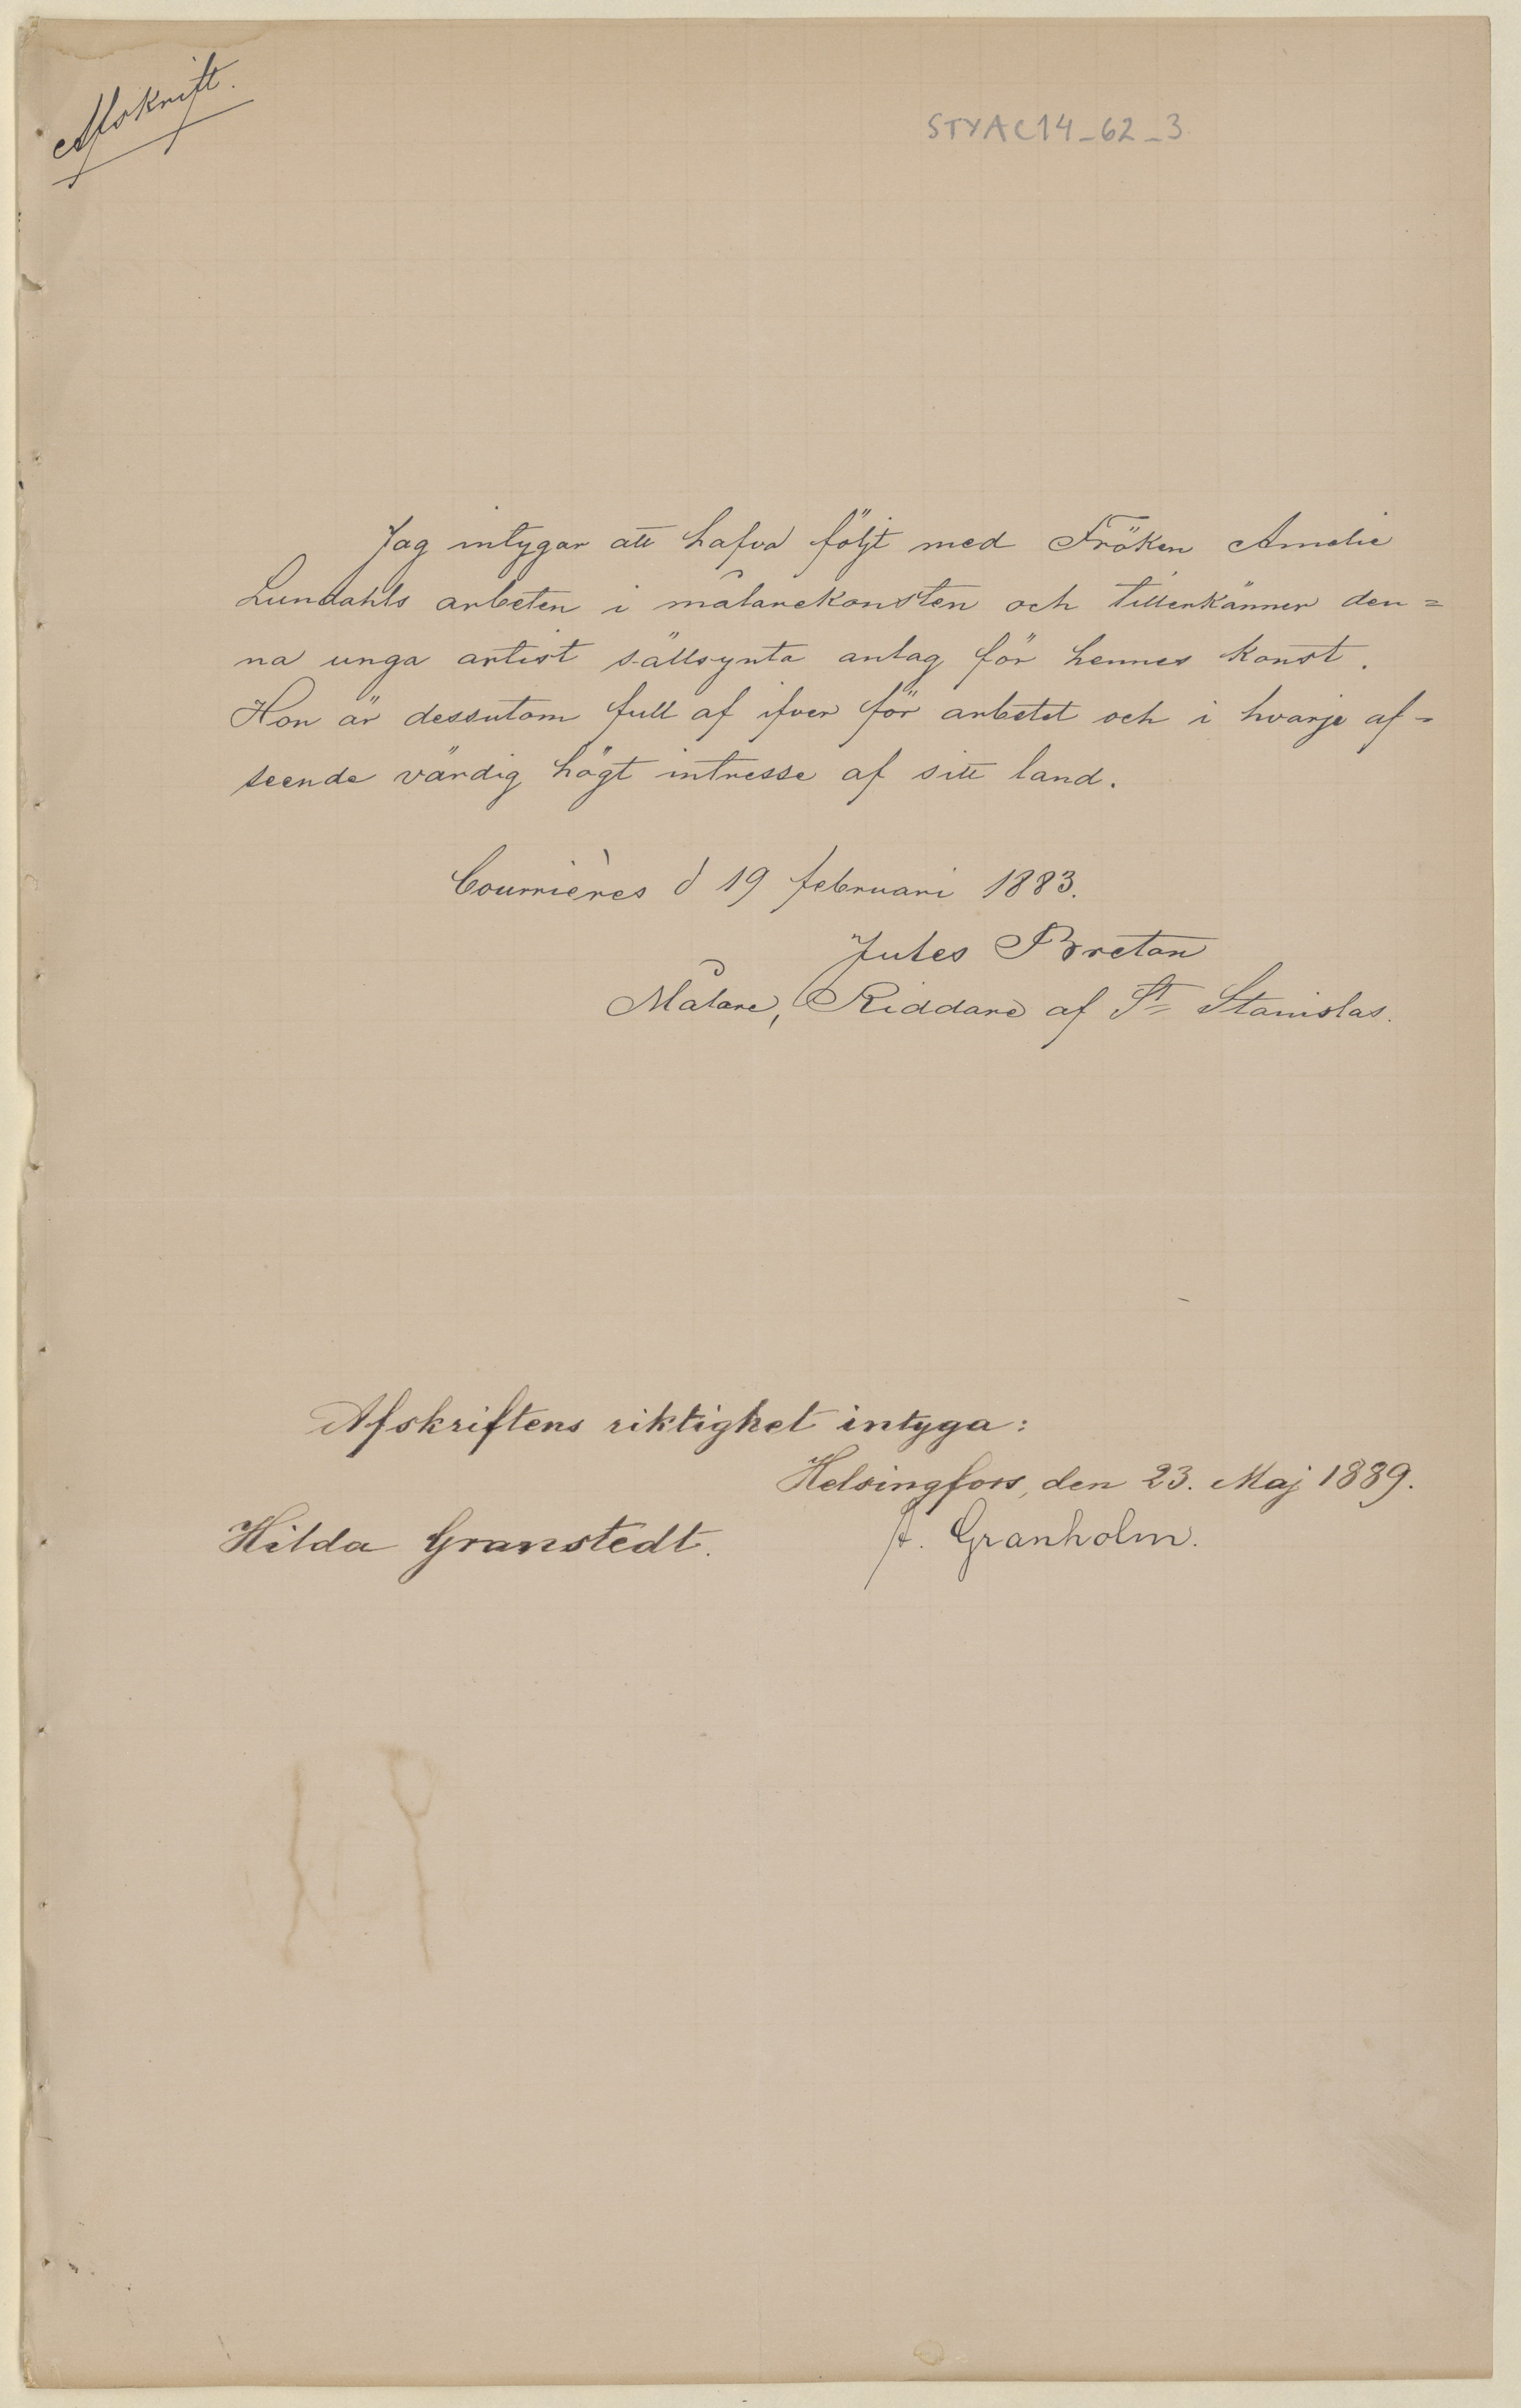 Afskrift.
STYAC14_62_3
Jag intygar att hafva följt med Fröken Amelie
Lundahls arbeten i målarekonsten och tillerkänner den=
na unga artist sällsynta anlag för hennes konst.
Hon är dessutom full af ifver för arbetet och i hvarje af=
seende värdig högt intresse af sitt land.
Courrières d 19 februari 1883.
Jules Breton
Målare, Riddare af St Stanislas.
Afskriftens riktighet intyga:
Helsingfors, den 23. Maj 1889.
Hilda Granstedt. A. Granholm.